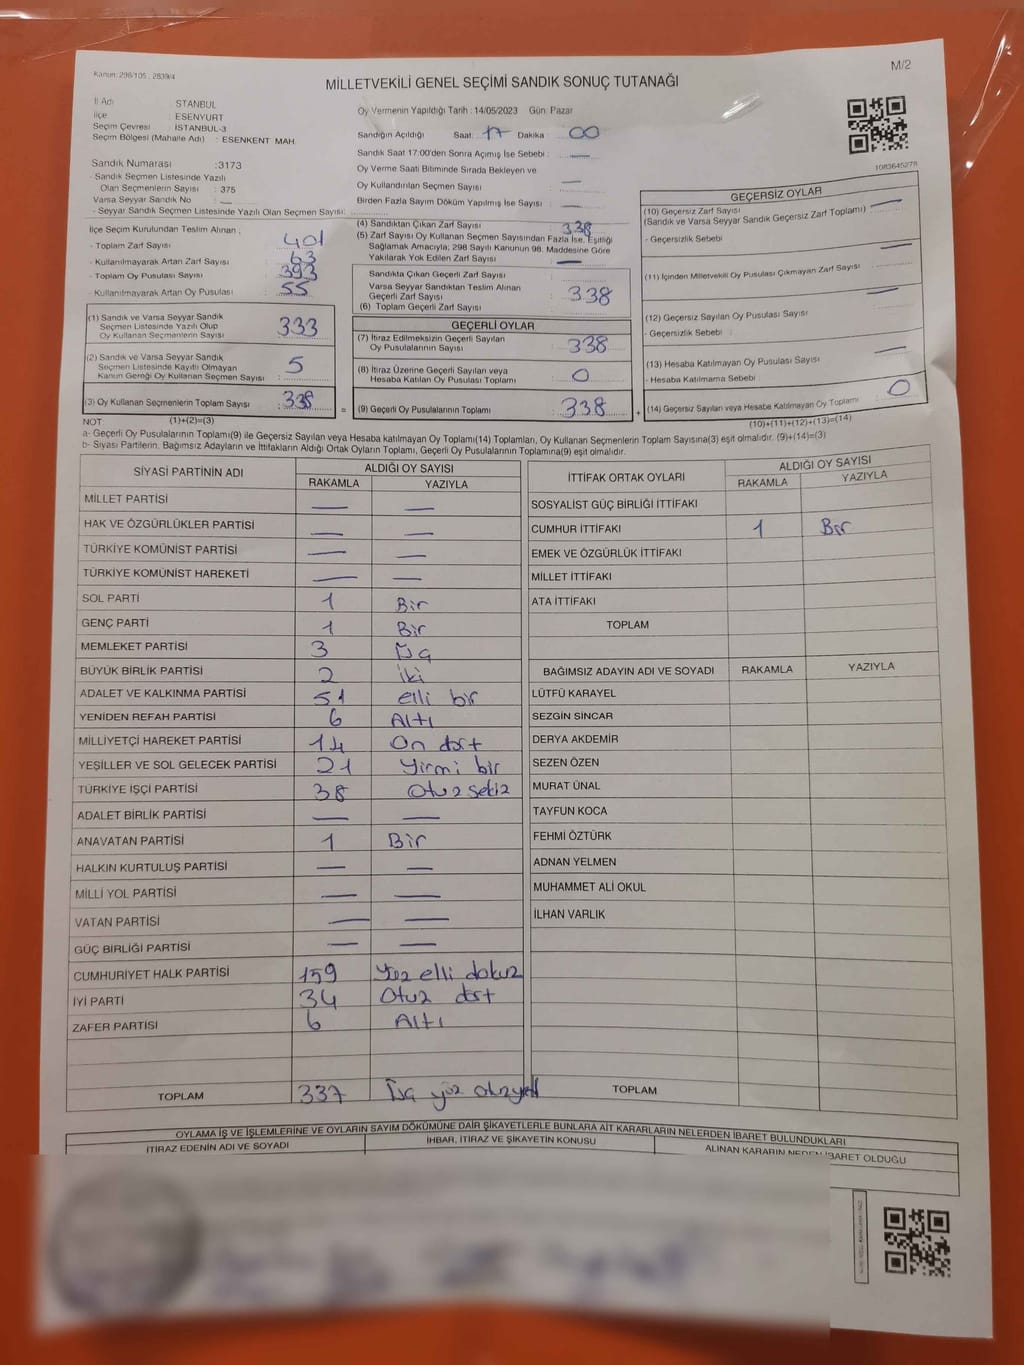 Kanun: 298/105 , 2839/4
M/2
MİLLETVEKİLİ GENEL SEÇİMİ SANDIK SONUÇ TUTANAĞI
İl Adı : İSTANBUL
İlçe : ESENYURT
Seçim Çevresi : İSTANBUL-3
Seçim Bölgesi (Mahalle Adı) : ESENKENT MAH.
Sandık Numarası :3173
- Sandık Seçmen Listesinde Yazılı
Olan Seçmenlerin Sayısı : 375
Varsa Seyyar Sandık No : —
- Seyyar Sandık Seçmen Listesinde Yazılı Olan Seçmen Sayısı:
Oy Vermenin Yapıldığı Tarih : 14/05/2023 Gün: Pazar
Sandığın Açıldığı Saat: 17 Dakika : 00
Sandık Saat 17:00'den Sonra Açılmış İse Sebebi : —
Oy Verme Saati Bitiminde Sırada Bekleyen ve
Oy Kullandırılan Seçmen Sayısı : —
Birden Fazla Sayım Döküm Yapılmış İse Sayısı : —
1083645278
İlçe Seçim Kurulundan Teslim Alınan ;
- Toplam Zarf Sayısı : 401
- Kullanılmayarak Artan Zarf Sayısı : 63
- Toplam Oy Pusulası Sayısı : 393
- Kullanılmayarak Artan Oy Pusulası : 55
(1) Sandık ve Varsa Seyyar Sandık
Seçmen Listesinde Yazılı Olup
Oy Kullanan Seçmenlerin Sayısı : 333
(2) Sandık ve Varsa Seyyar Sandık
Seçmen Listesinde Kayıtlı Olmayan
Kanun Gereği Oy Kullanan Seçmen Sayısı : 5
(3) Oy Kullanan Seçmenlerin Toplam Sayısı : 338
(4) Sandıktan Çıkan Zarf Sayısı : 338
(5) Zarf Sayısı Oy Kullanan Seçmen Sayısından Fazla İse, Eşitliği
Sağlamak Amacıyla; 298 Sayılı Kanunun 98. Maddesine Göre
Yakılarak Yok Edilen Zarf Sayısı : —
Sandıkta Çıkan Geçerli Zarf Sayısı :
Varsa Seyyar Sandıktan Teslim Alınan
Geçerli Zarf Sayısı : 338
(6) Toplam Geçerli Zarf Sayısı :
GEÇERLİ OYLAR
(7) İtiraz Edilmeksizin Geçerli Sayılan
Oy Pusulalarının Sayısı : 338
(8) İtiraz Üzerine Geçerli Sayılan veya
Hesaba Katılan Oy Pusulası Toplamı : 0
= (9) Geçerli Oy Pusulalarının Toplamı : 338
GEÇERSİZ OYLAR
(10) Geçersiz Zarf Sayısı : —
(Sandık ve Varsa Seyyar Sandık Geçersiz Zarf Toplamı)
- Geçersizlik Sebebi :
(11) İçinden Milletvekili Oy Pusulası Çıkmayan Zarf Sayısı : —
(12) Geçersiz Sayılan Oy Pusulası Sayısı : —
- Geçersizlik Sebebi :
(13) Hesaba Katılmayan Oy Pusulası Sayısı : —
- Hesaba Katılmama Sebebi :
+ (14) Geçersiz Sayılan veya Hesaba Katılmayan Oy Toplamı : 0
NOT (1)+(2)=(3) (10)+(11)+(12)+(13)=(14)
a- Geçerli Oy Pusulalarının Toplamı(9) ile Geçersiz Sayılan veya Hesaba katılmayan Oy Toplamı(14) Toplamları, Oy Kullanan Seçmenlerin Toplam Sayısına(3) eşit olmalıdır. (9)+(14)=(3)
b- Siyasi Partilerin, Bağımsız Adayların ve İttifakların Aldığı Ortak Oyların Toplamı, Geçerli Oy Pusulalarının Toplamına(9) eşit olmalıdır.
SİYASİ PARTİNİN ADI ALDIĞI OY SAYISI
RAKAMLA YAZIYLA
MİLLET PARTİSİ — —
HAK VE ÖZGÜRLÜKLER PARTİSİ — —
TÜRKİYE KOMÜNİST PARTİSİ — —
TÜRKİYE KOMÜNİST HAREKETİ — —
SOL PARTİ 1 Bir
GENÇ PARTİ 1 Bir
MEMLEKET PARTİSİ 3 Üç
BÜYÜK BİRLİK PARTİSİ 2 iki
ADALET VE KALKINMA PARTİSİ 51 elli bir
YENİDEN REFAH PARTİSİ 6 Altı
MİLLİYETÇİ HAREKET PARTİSİ 14 On dört
YEŞİLLER VE SOL GELECEK PARTİSİ 21 Yirmi bir
TÜRKİYE İŞÇİ PARTİSİ 38 Otuz sekiz
ADALET BİRLİK PARTİSİ — —
ANAVATAN PARTİSİ 1 Bir
HALKIN KURTULUŞ PARTİSİ — —
MİLLİ YOL PARTİSİ — —
VATAN PARTİSİ — —
GÜÇ BİRLİĞİ PARTİSİ — —
CUMHURİYET HALK PARTİSİ 159 Yüz elli dokuz
İYİ PARTİ 34 Otuz dört
ZAFER PARTİSİ 6 Altı
TOPLAM 337 Üç yüz otuzyedi
İTTİFAK ORTAK OYLARI ALDIĞI OY SAYISI
RAKAMLA YAZIYLA
SOSYALİST GÜÇ BİRLİĞİ İTTİFAKI
CUMHUR İTTİFAKI 1 Bir
EMEK VE ÖZGÜRLÜK İTTİFAKI
MİLLET İTTİFAKI
ATA İTTİFAKI
TOPLAM
BAĞIMSIZ ADAYIN ADI VE SOYADI RAKAMLA YAZIYLA
LÜTFÜ KARAYEL
SEZGİN SİNCAR
DERYA AKDEMİR
SEZEN ÖZEN
MURAT ÜNAL
TAYFUN KOCA
FEHMİ ÖZTÜRK
ADNAN YELMEN
MUHAMMET ALİ OKUL
İLHAN VARLIK
TOPLAM
OYLAMA İŞ VE İŞLEMLERİNE VE OYLARIN SAYIM DÖKÜMÜNE DAİR ŞİKAYETLERLE BUNLARA AİT KARARLARIN NELERDEN İBARET BULUNDUKLARI
İTİRAZ EDENİN ADI VE SOYADI İHBAR, İTİRAZ VE ŞİKAYETİN KONUSU ALINAN KARARIN NEDEN İBARET OLDUĞU